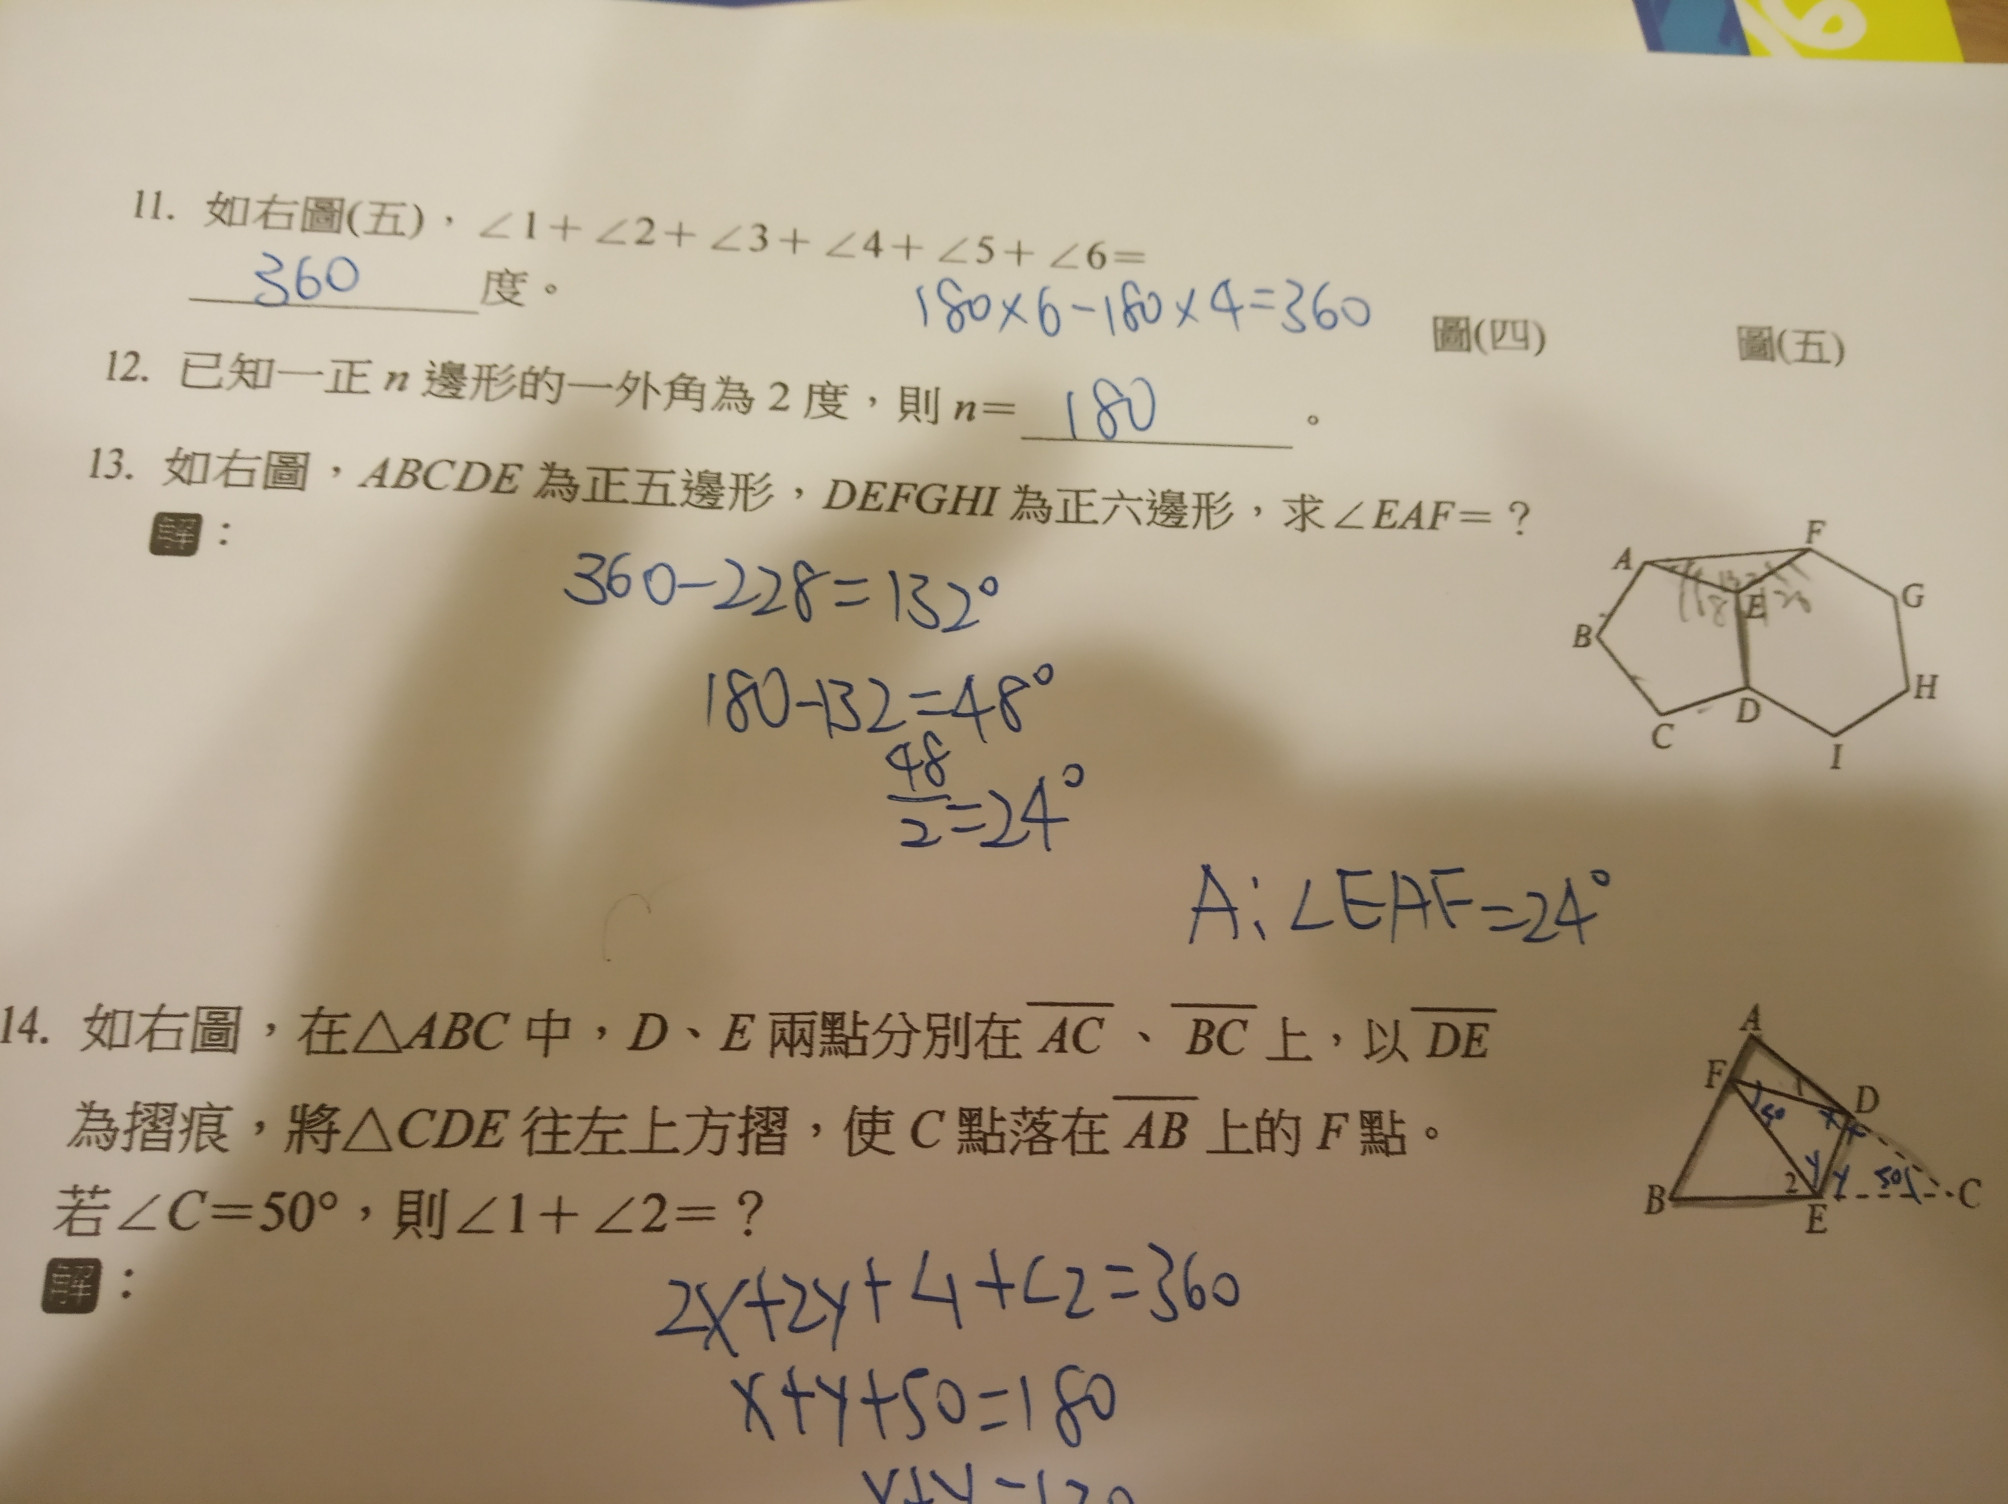 11. 如右圖(五)，∠1+∠2+∠3+∠4+∠5+∠6=
360 度。
180×6-180×4=360
圖(四) 圖(五)
12. 已知一正 n 邊形的一外角為 2 度，則 n= 180 。
13. 如右圖，ABCDE 為正五邊形，DEFGHI 為正六邊形，求∠EAF=？
解：
360-228=132°
180-132=48°
48/2=24°
A:∠EAF=24°
A F G B E D H C I
14. 如右圖，在△ABC 中，D、E 兩點分別在 \overline{AC}、\overline{BC} 上，以 \overline{DE}
為摺痕，將△CDE 往左上方摺，使 C 點落在 \overline{AB} 上的 F 點。
若∠C=50°，則∠1+∠2=？
解：
A F 1 D 50 x x
B 2 y y 50 C E
2x+2y+∠1+∠2=360
x+y+50=180